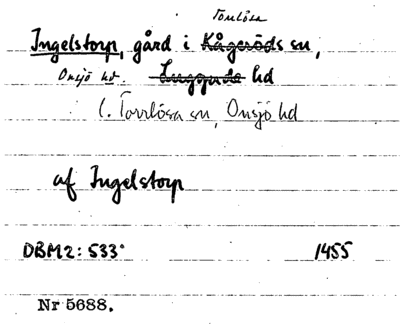 Torrlösa
Ingelstorp, gård i Kågeröds sn,
Onsjö hd. Luggude hd
(. Torrlösa sn, Onsjö hd
af Ingelstorp
DBM2: 533 1455
Nr 5688.